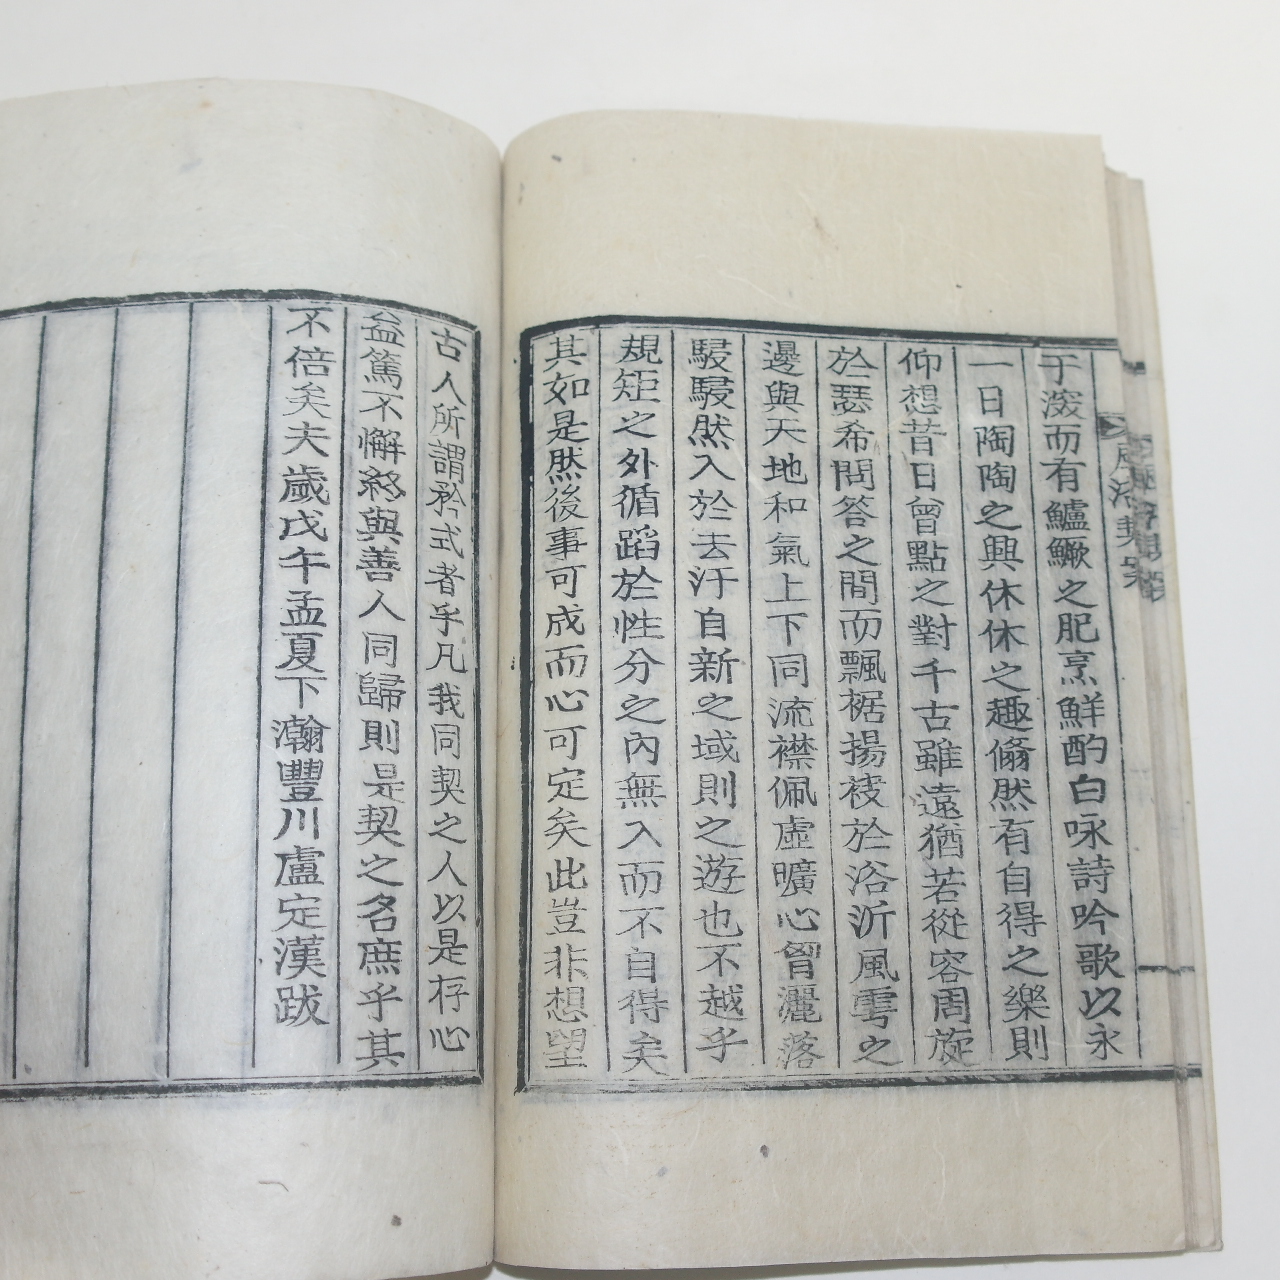 于滚而有鱸鱖之肥烹鮮酌白咏詩吟歌以永
一日陶陶之興休休之趣翛然有自得之樂則
仰想昔日曾點之對千古雖遠猶若從容周旋
於瑟希問答之間而飄裾揚袚於浴沂風雩之
邊與天地和氣上下同流襟佩虛曠心胷灑落
駸駸然入於去汙自新之域則之遊也不越乎
規矩之外循蹈於性分之內無入而不自得矣
其如是然後事可成而心可定矣此豈非想望
古人所謂矜式者乎凡我同契之人以是存心
益篤不懈終與善人同歸則是契之名庶乎其
不倍矣夫歲戊午孟夏下瀚豐川盧定漢跋